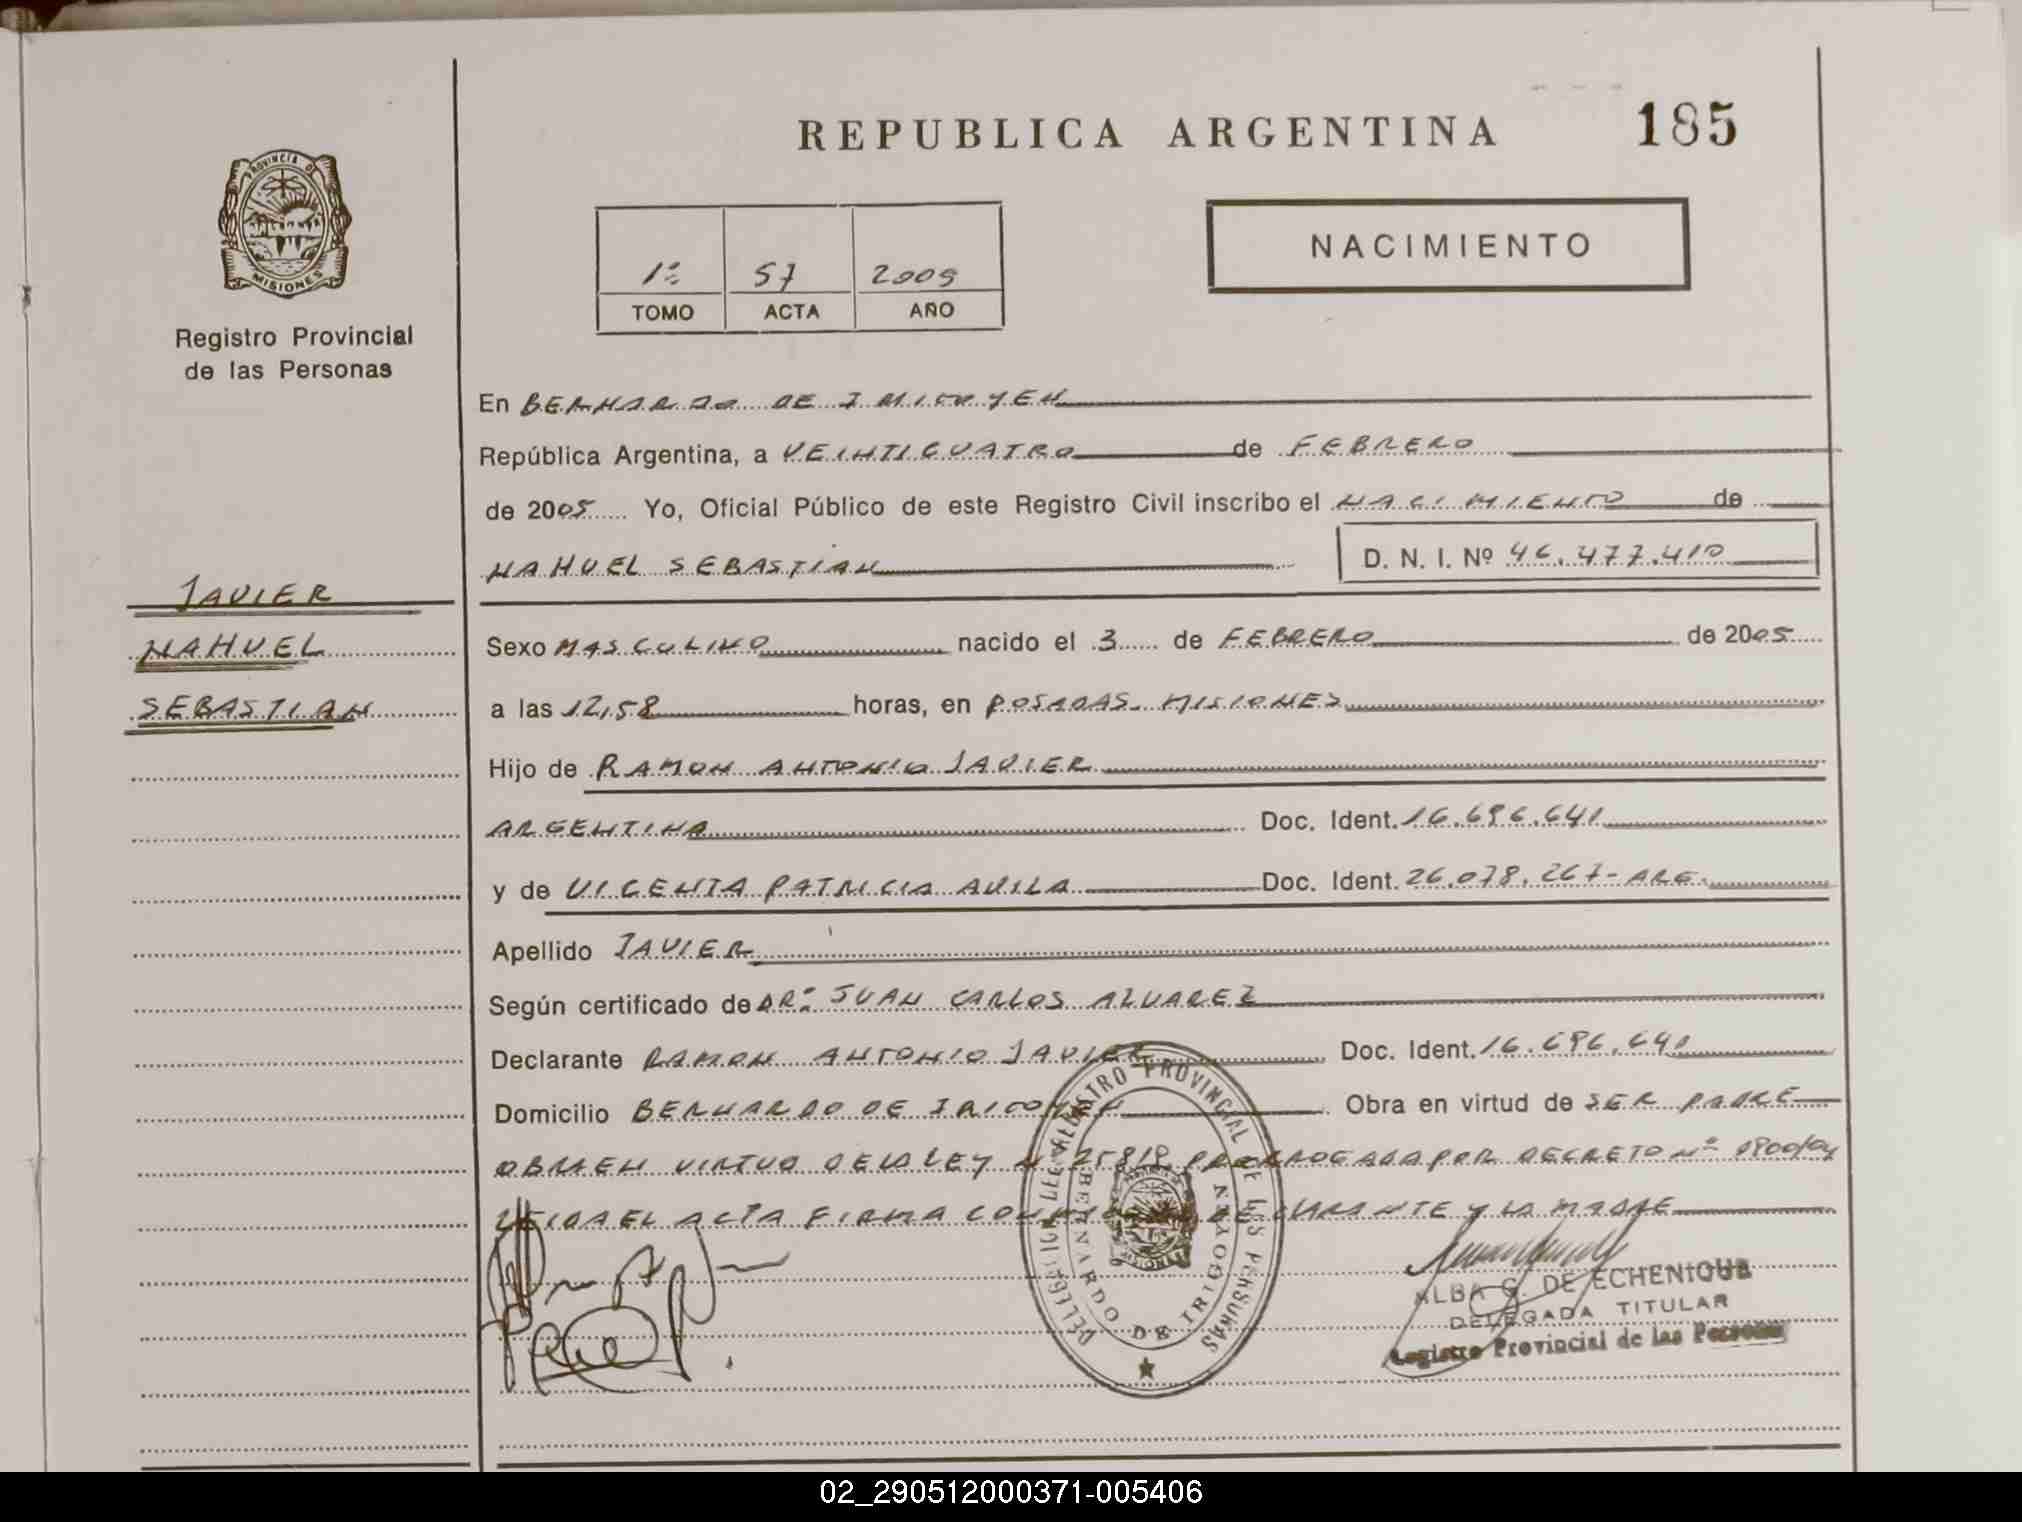 REPUBLICA ARGENTINA
185
PROVINCIA DE
MISIONES
Registro Provincial
de las Personas
NACIMIENTO
1º 57 2005
TOMO ACTA AÑO
En BERNARDO DE IRIGOYEN
República Argentina, a VEINTICUATRO de FEBRERO
de 2005 Yo, Oficial Público de este Registro Civil inscribo el NACIMIENTO de
NAHUEL SEBASTIAN D. N. I. Nº 46.477.410
JAVIER
NAHUEL
SEBASTIAN
Sexo MASCULINO nacido el 3 de FEBRERO de 2005
a las 12,58 horas, en POSADAS. MISIONES
Hijo de RAMON ANTONIO JAVIER
ARGENTINA Doc. Ident. 16.696.641
y de VICENTA PATRICIA AVILA Doc. Ident. 26.078.267-ARG.
Apellido JAVIER
Según certificado de DR. JUAN CARLOS ALVAREZ
Declarante RAMON ANTONIO JAVIER Doc. Ident. 16.696.641
Domicilio BERNARDO DE IRIGOYEN Obra en virtud de SER PADRE
OBRA EN VIRTUD DE LA LEY Nº 25819 PRORROGADA POR DECRETO Nº
LEIDA EL ACTA FIRMA CONMIGO EL DECLARANTE Y LA MADRE
DELEGACION REGISTRO PROVINCIAL DE LAS PERSONAS
BERNARDO DE IRIGOYEN
ALBA G. DE ECHENIQUE
DELEGADA TITULAR
Registro Provincial de las Personas
02_290512000371-005406